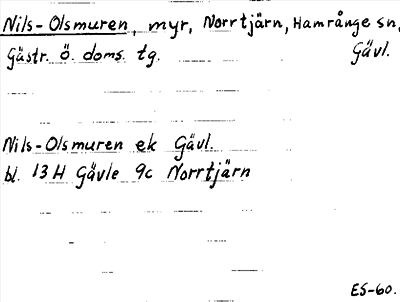 Nils-Olsmuren, myr, Norrtjärn, Hamrånge sn,
Gästr. ö. doms. tg. Gävl.
Nils-Olsmuren ek Gävl.
bl. 13H Gävle 9c Norrtjärn
ES-60.